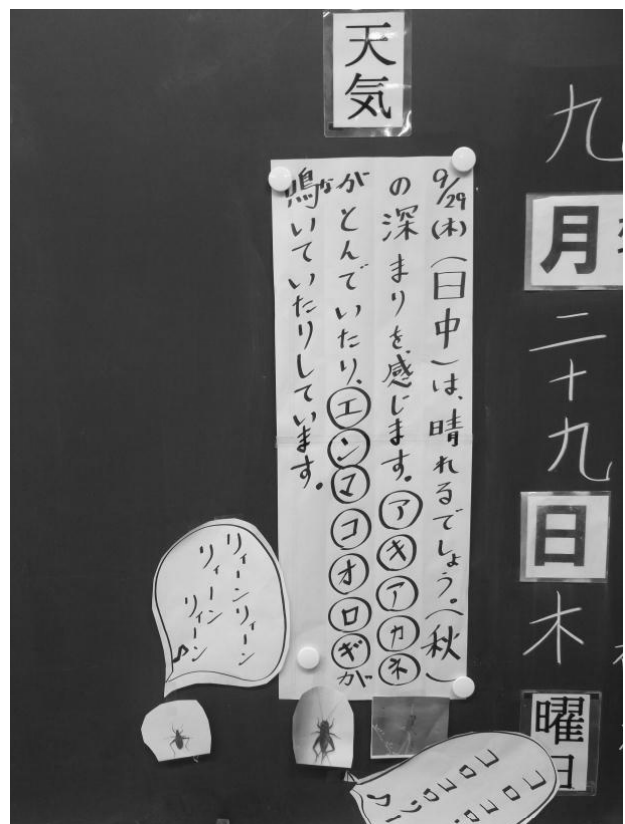 九
月
二十九
日
木
曜日
天気
9/29(木)(日中)は、晴れるでしょう。(秋)
の深まりを感じます。アキアカネ
がとんでいたり、エンマコオロギが
鳴いていたりしています。
な
リィーンリィーン
リィーン
リィーン♪
コロコロ
コロコロ
コロコロリー